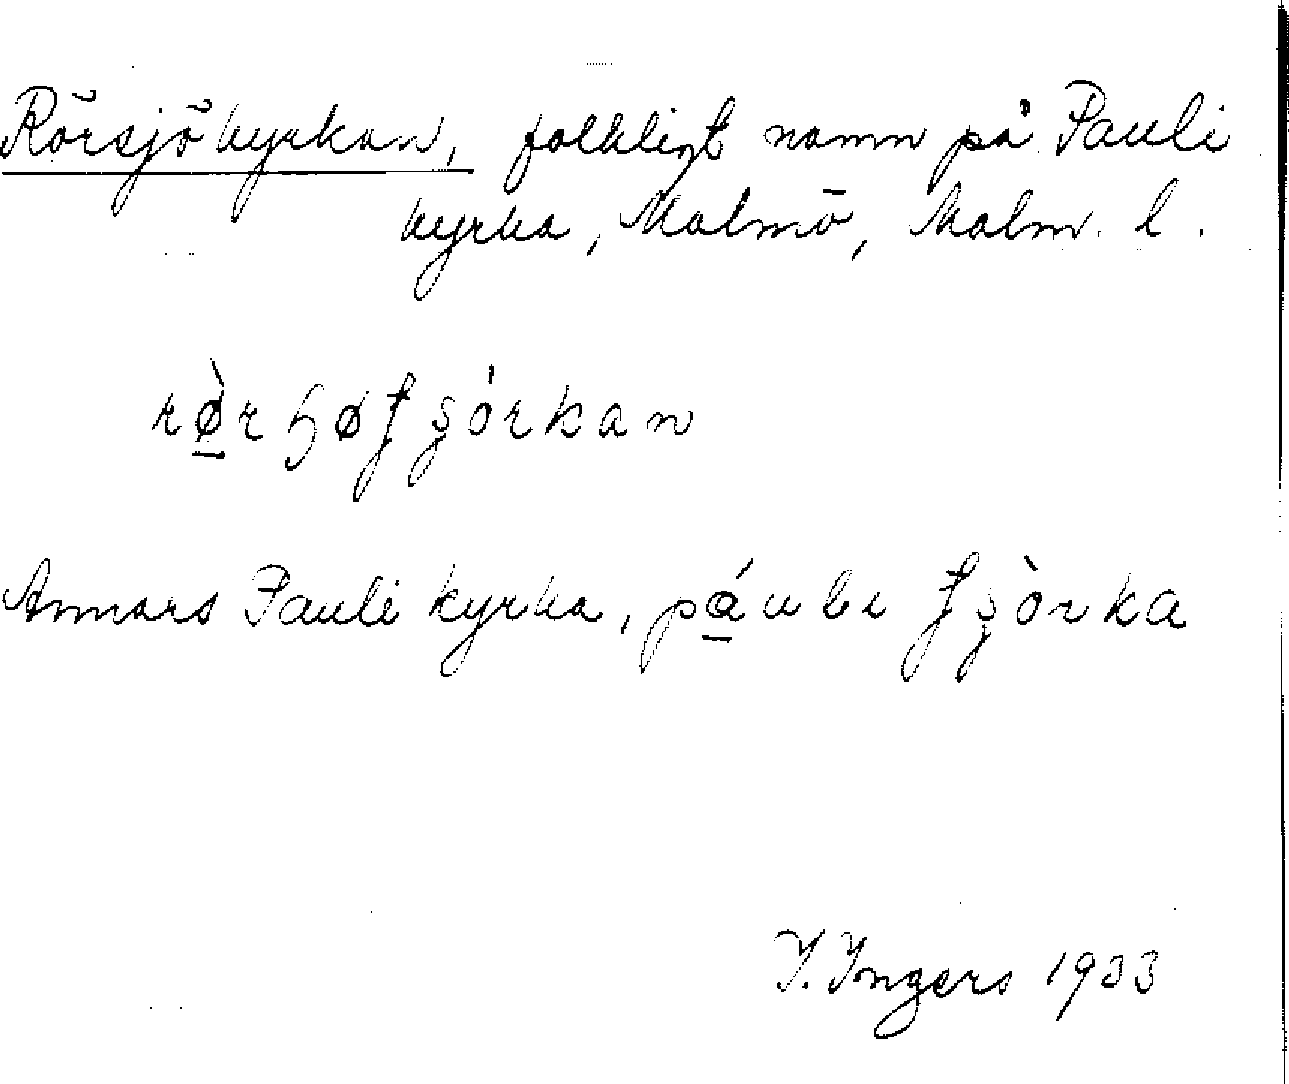 Rörsjökyrkan, folkligt namn på Pauli
kyrka, Malmö, Malm. l.
rø̠̀rɧøʃʂórkan
Annars Pauli kyrka, pá̠uli ʃʂòrka
I. Ingers 1933